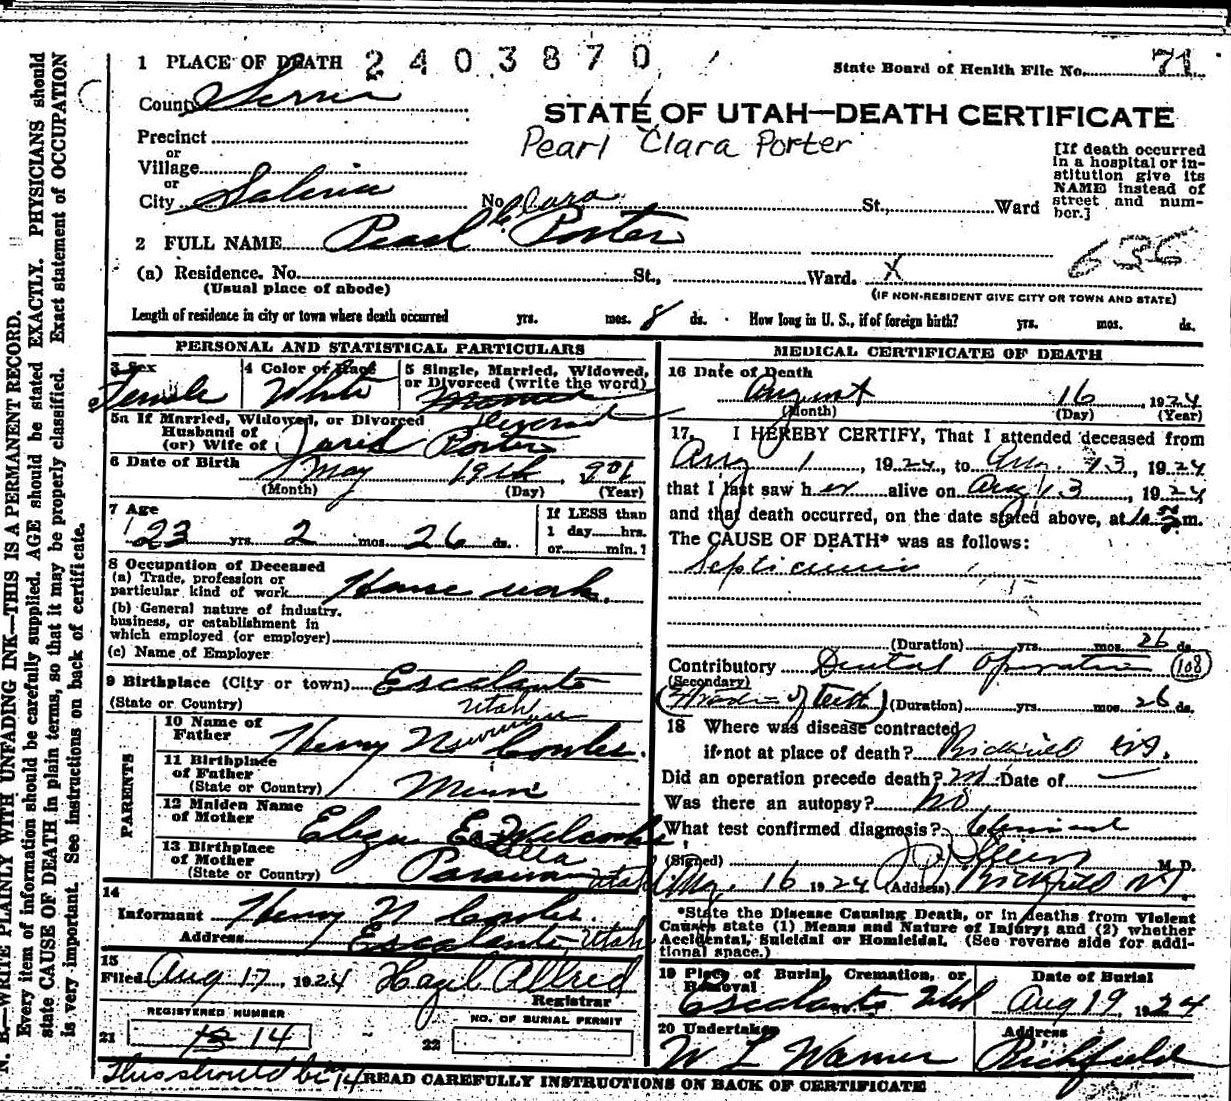 1 PLACE OF DEATH 2403870
State Board of Health File No. 71
County Sevier
STATE OF UTAH—DEATH CERTIFICATE
Pearl Clara Porter
Precinct
or
Village
or
City Salina No. St., Ward
[If death occurred
in a hospital or in-
stitution give its
NAME instead of
street and num-
ber.]
Clara
2 FULL NAME Pearl C Porter
636
(a) Residence. No. St., Ward. X
(Usual place of abode)
(IF NON-RESIDENT GIVE CITY OR TOWN AND STATE)
Length of residence in city or town where death occurred yrs. mos. 8 ds. How long in U. S., if of foreign birth? yrs. mos. ds.
PERSONAL AND STATISTICAL PARTICULARS
3 Sex 4 Color or Race 5 Single, Married, Widowed,
or Divorced (write the word)
Female White Married
5a If Married, Widowed, or Divorced
Husband of
(or) Wife of Jared Porter
6 Date of Birth May 19th 901
(Month) (Day) (Year)
7 Age
23 yrs. 2 mos. 26 ds.
If LESS than
1 day hrs.
or min.?
8 Occupation of Deceased
(a) Trade, profession or
particular kind of work House work.
(b) General nature of industry.
business, or establishment in
which employed (or employer)
(c) Name of Employer
9 Birthplace (City or town) Escalante
(State or Country) Utah
PARENTS
10 Name of
Father Henry Newman Cowles.
11 Birthplace
of Father
(State or Country) Minn
12 Maiden Name
of Mother Eliza E. Wilcock
Ella
13 Birthplace
of Mother
(State or Country) Parowan Utah
14
Informant Henry N Cowles.
Address Escalante Utah
15
Filed Aug 17, 1924 Hazel Allred
Registrar
REGISTERED NUMBER
21 13 14
NO. OF BURIAL PERMIT
22
This should be 14
MEDICAL CERTIFICATE OF DEATH
16 Date of Death
August 16 1924
(Month) (Day) (Year)
17 I HEREBY CERTIFY, That I attended deceased from
Aug 1, 1924, to Aug. 13, 1924
that I last saw her alive on Aug 13, 1924
and that death occurred, on the date stated above, at m.
The CAUSE OF DEATH* was as follows:
Septicemia
(Duration) yrs. mos. 26 ds.
Contributory Dental Operation 108
(Secondary)
of teeth) (Duration) yrs. mos. 26 ds.
18 Where was disease contracted
if not at place of death? Richfield Ut.
Did an operation precede death? Date of
Was there an autopsy? No
What test confirmed diagnosis? Clinical
(Signed) M.D.
Aug. 16 1924 (Address) Richfield Ut
*State the Disease Causing Death, or in deaths from Violent
Causes state (1) Means and Nature of Injury; and (2) whether
Accidental, Suicidal or Homicidal. (See reverse side for addi-
tional space.)
19 Place of Burial, Cremation, or
Removal
Date of Burial
Escalante Utah Aug 19 1924
20 Undertaker Address
W L Warner Richfield
READ CAREFULLY INSTRUCTIONS ON BACK OF CERTIFICATE
N. B.—WRITE PLAINLY WITH UNFADING INK—THIS IS A PERMANENT RECORD.
Every item of information should be carefully supplied. AGE should be stated EXACTLY. PHYSICIANS should
state CAUSE OF DEATH in plain terms, so that it may be properly classified. Exact statement of OCCUPATION
is very important. See instructions on back of certificate.